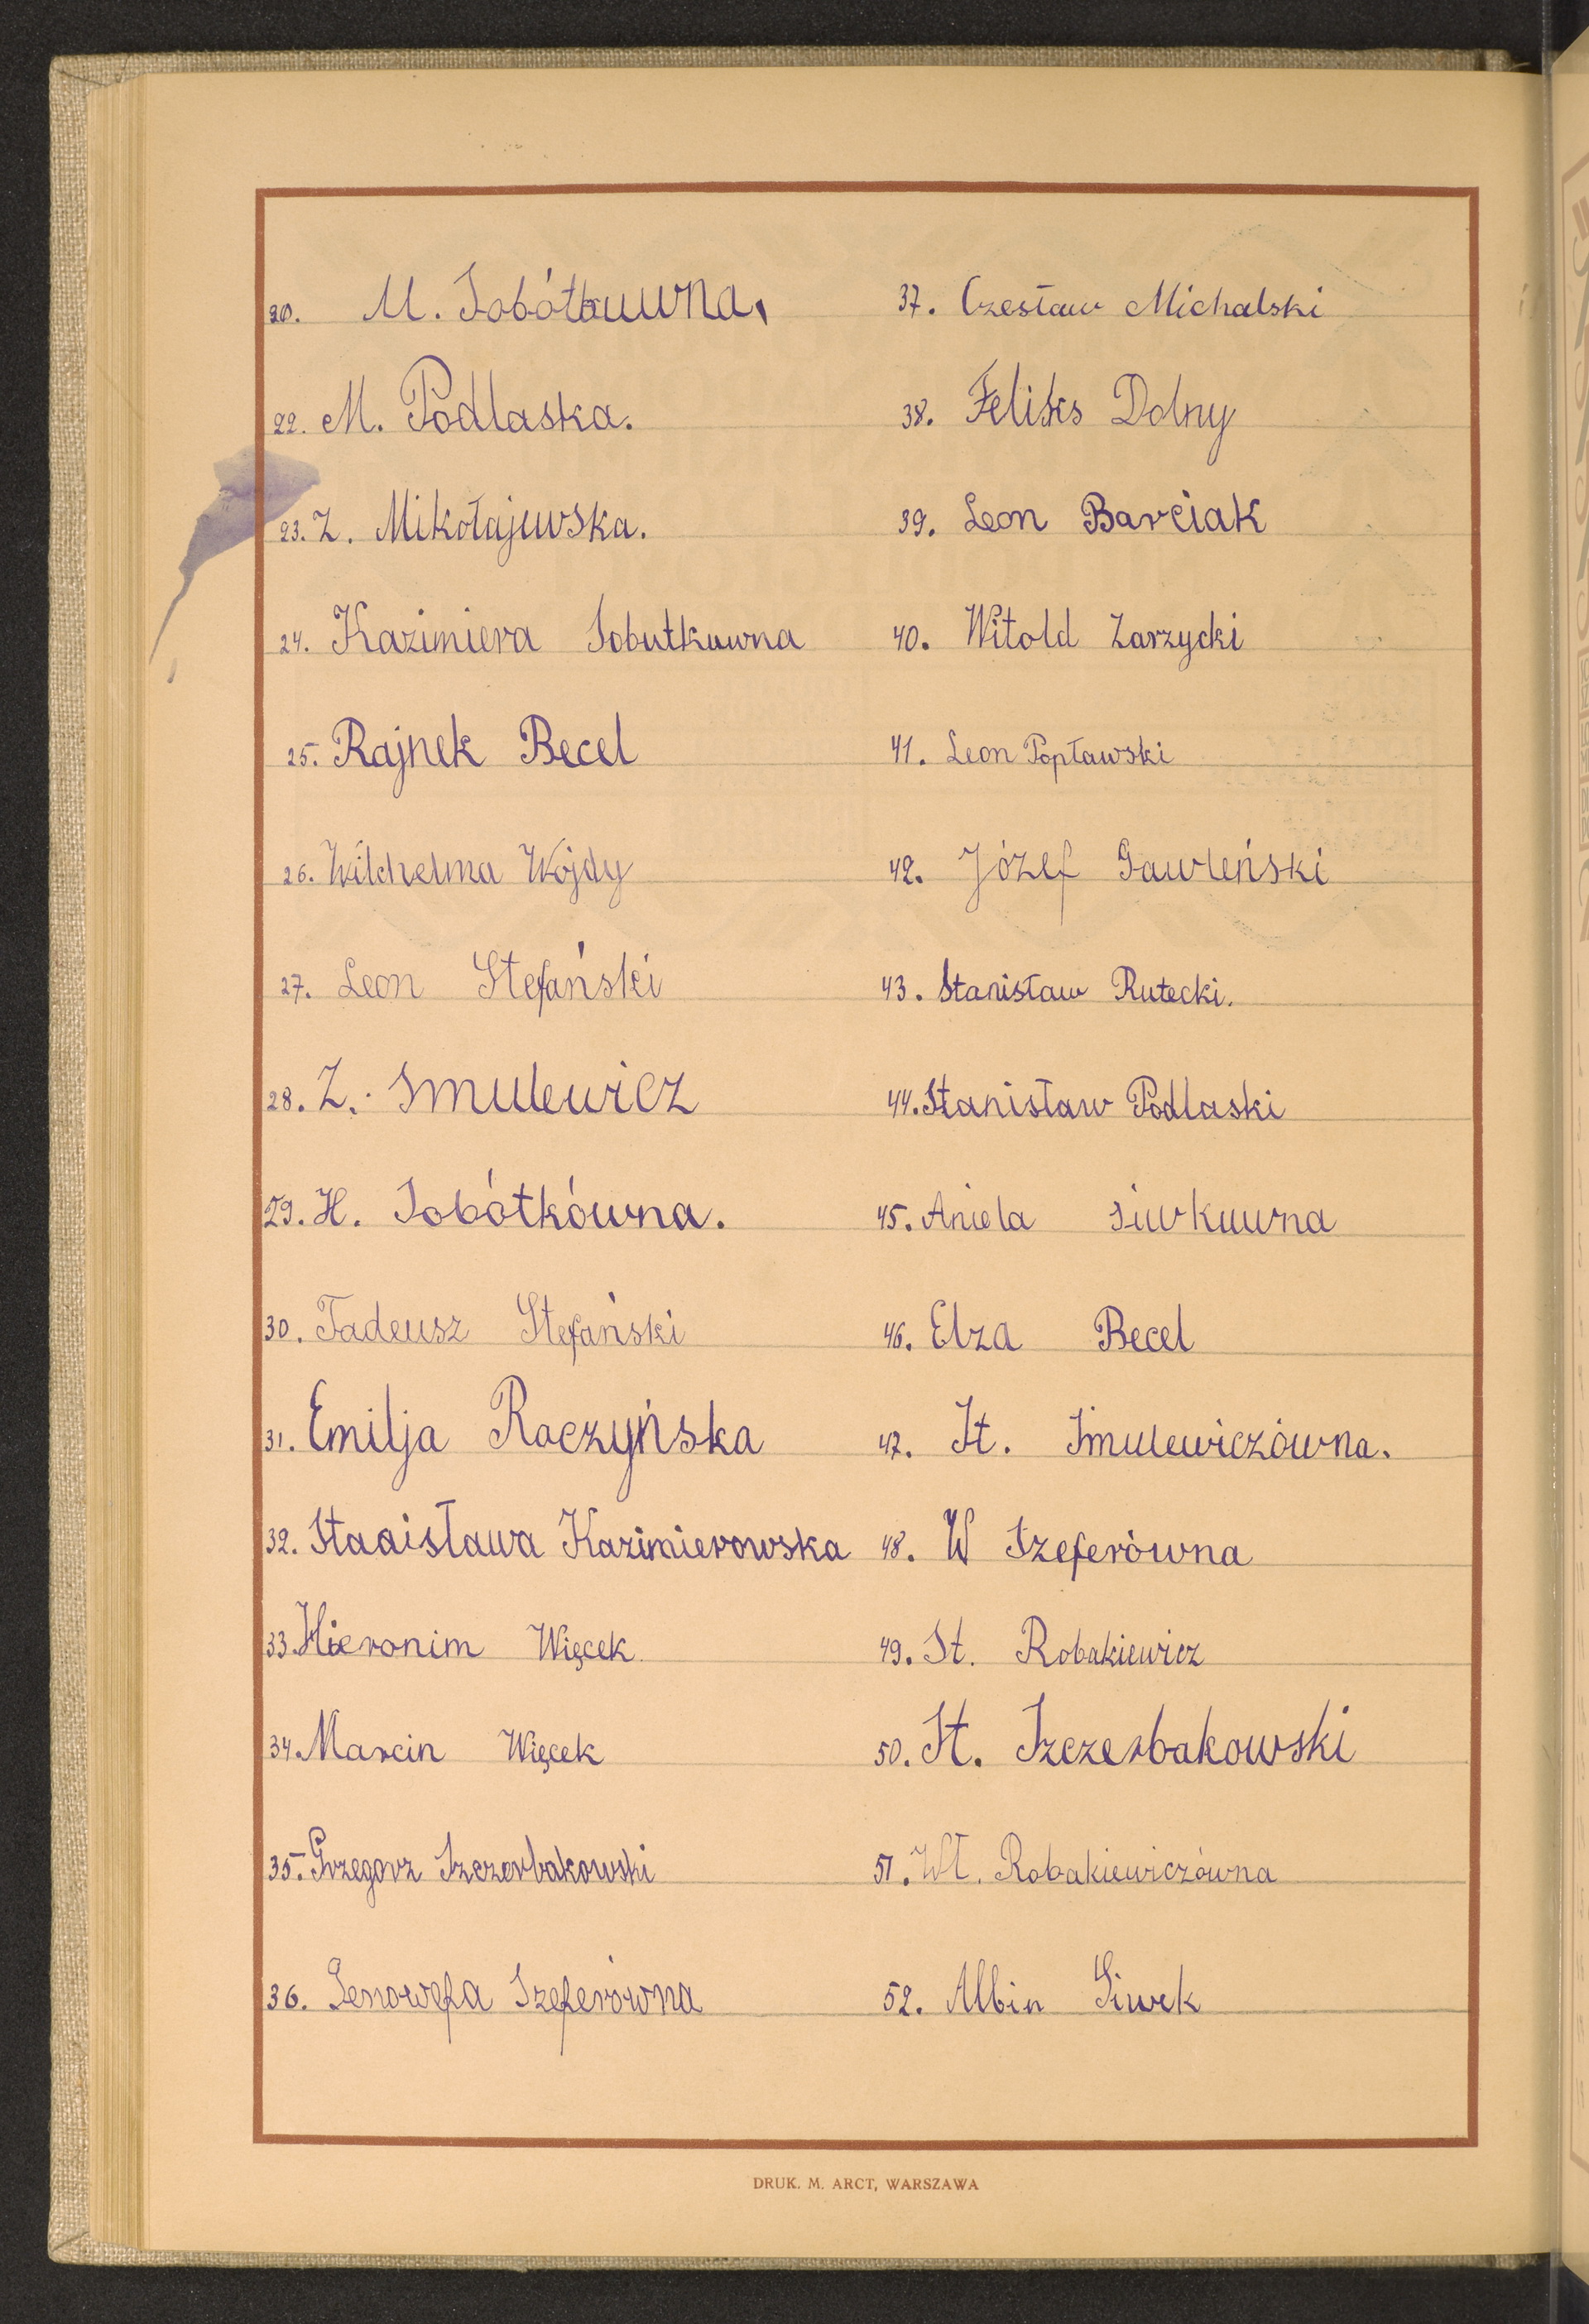 20. M. Sobótkuwna.
22. M. Podlaska.
23. Z. Mikołajuwska.
24. Kazimiera Sobutkuwna
25. Rajnek Becel
26. Wilchelma Wojdy
27. Leon Stefański
28. Z. Smulewicz
29. H. Sobótkówna.
30. Tadeusz Stefański
31. Emilja Raczyńska
32. Staaisława Kazimierowska
33. Hieronim Więcek
34. Marcin Więcek
35. Grzegorz Szczerbakowski
36. Genowefa Szeferówna
37. Czesław Michalski
38. Feliks Dolny
39. Leon Barciak
40. Witold Zarzycki
41. Leon Popławski
42. Józef Gawleński
43. Stanisław Rutecki.
44. Stanisław Podlaski
45. Aniela Siwkuwna
46. Elza Becel
47. St. Smulewiczówna.
48. W Szeferówna
49. St. Robakiewicz
50. St. Szczerbakowski
51. Wł. Robakiewiczówna
52. Albin Siwek
DRUK. M. ARCT, WARSZAWA